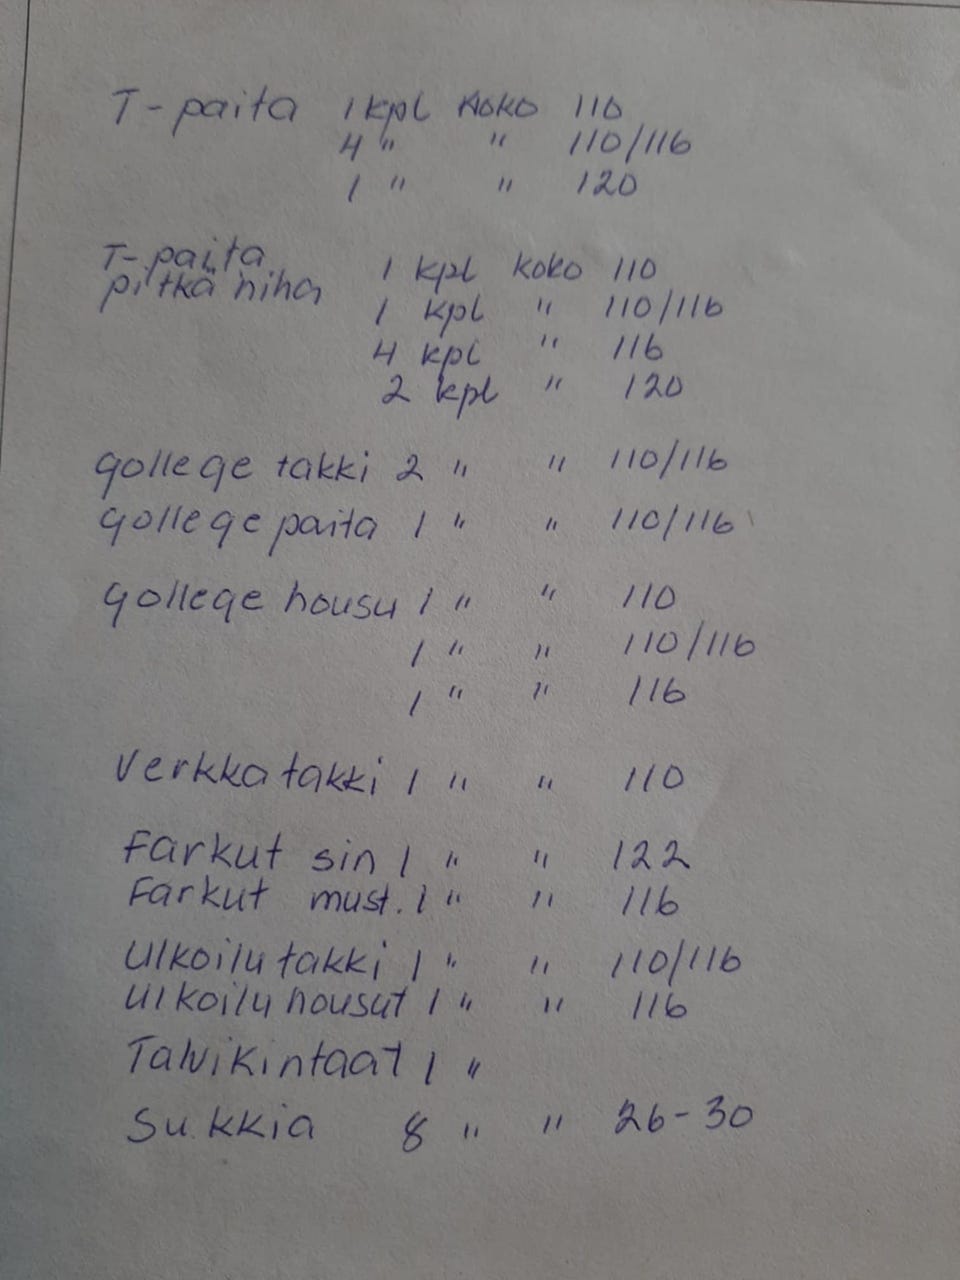 T-paita 1 kpl koko 110
4 " " 110/116
1 " " 120
T-paita
pitkä hiha 1 kpl koko 110
1 kpl " 110/116
4 kpl " 116
2 kpl " 120
qollege takki 2 " " 110/116
qollege paita 1 " " 110/116
qollege housu 1 " " 110
1 " " 110/116
1 " " 116
Verkkatakki 1 " " 110
Farkut sin 1 " " 122
Farkut must. 1 " " 116
Ulkoilutakki 1 " " 110/116
Ulkoiluhousut 1 " " 116
Talvikintaat 1 "
Sukkia 8 " " 26-30